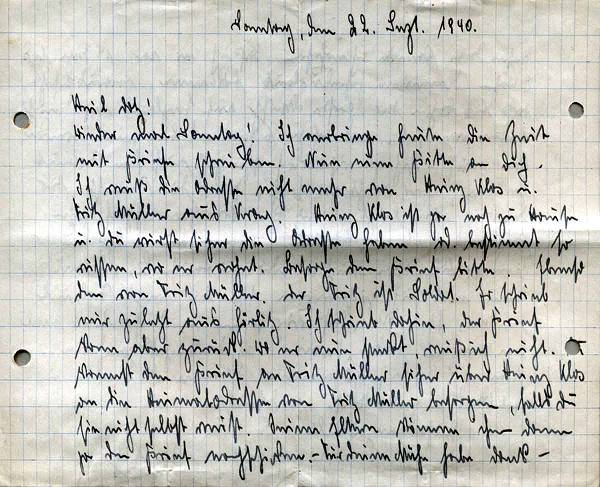 Sonntag, den 22. Sept. 1940.
Heil Dolf!
Wieder mal Sonntag! Ich verbringe heute die Zeit
mit Briefe schreiben. Nun eine Bitte an Dich.
Ich weiß die Adresse nicht mehr von Heinz Klos u.
Fritz Müller aus Krag. Heinz Klos ist ja noch zu Hause
u. Du wirst sicher die Adresse haben od. bestimmt so
wissen, wo er wohnt. Besorge den Brief bitte. Ebenso
den von Fritz Müller. Der Fritz ist Soldat. Er schrieb
mir zuletzt aus Görlitz. Ich schrieb dahin, der Brief
kam aber zurück. Wo er nun steckt, weiß ich nicht.
kannst den Brief an Fritz Müller sicher über Heinz Klos
an die Heimatadresse von Fritz Müller besorgen, falls Du
sie nicht selbst weißt. Seine Eltern können ihm dann
ja den Brief nachschicken. - Für Deine Mühe habe Dank -